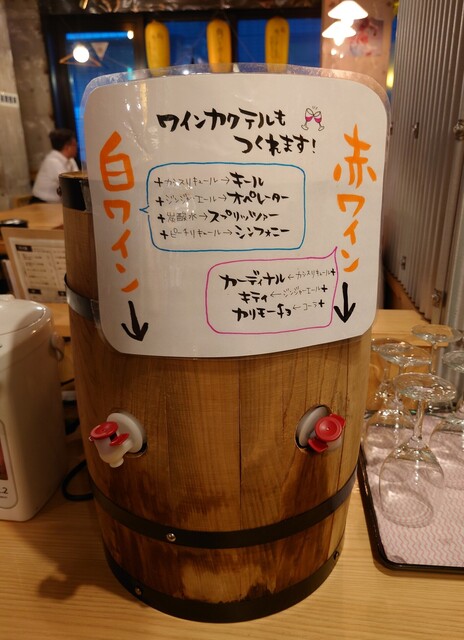 ワインカクテルも
つくれます!
白ワイン
+カシスリキュール→キール
+ジンジャーエール→オペレーター
+炭酸水→スプリッツァー
+ピーチリキュール→シンフォニー
赤ワイン
カーディナル←カシスリキュール+
キティ←ジンジャーエール+
カリモーチョ←コーラ+